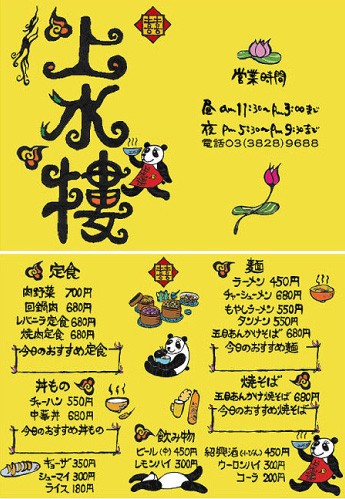 上水樓
営業時間
昼 am 11:30~pm 3:00まで
夜 pm 5:30~pm 9:30まで
電話03(3828)9688
定食
肉野菜 700円
回鍋肉 680円
レバニラ定食 680円
焼肉定食 680円
今日のおすすめ定食
丼もの
チャーハン 550円
中華丼 680円
今日のおすすめ丼もの
ギョーザ 350円
シューマイ 300円
ライス 180円
麺
ラーメン 450円
チャーシューメン 680円
もやしラーメン 550円
タンメン 550円
五目あんかけそば 680円
今日のおすすめ麺
焼そば
五目あんかけ焼そば 680円
今日のおすすめ焼そば
飲み物
ビール(中) 450円
レモンハイ 300円
紹興酒 450円
ウーロンハイ 300円
コーラ 200円